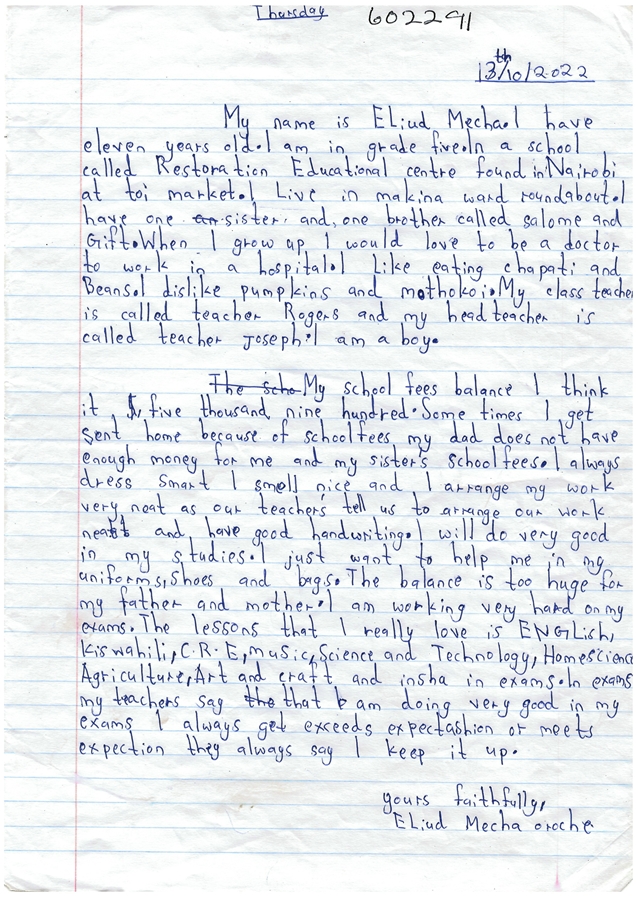 Thursday 602291
13th/10/2022
My name is ELiud Mecha.I have
eleven years old.I am in grade five.In a school
called Restoration Educational centre found in Nairobi
at toi market.I Live in makina ward roundabout.I
have one an sister, and, one brother called salome and
Gift.When I grow up I would love to be a doctor
to work in a hospital.I Like eating chapati and
Beans.I dislike pumpkins and mothokoi.My class teacher
is called teacher Rogers and my headteacher is
called teacher Joseph.I am a boy.
The scho My school fees balance I think
it is five thousand nine hundred.Some times I get
sent home because of schoolfees my dad does not have
enough money for me and my sister's schoolfees.I always
dress smart I smell nice and I arrange my work
very neat as our teacher's tell us to arrange our work
neatt and have good handwriting.I will do very good
in my studies.I just want to help me in my
uniforms,shoes and bags.The balance is too huge for
my father and mother.I am working very hard on my
exams.The lessons that I really love is ENGLish,
Kiswahili,C.R.E,music,Science and Technology,Homescience
Agriculture,Art and craft and insha in exams.In exams
my teachers say the that I am doing very good in my
exams I always get exceeds expectashion or meets
expection they always say I keep it up.
yours faithfully,
ELiud Mecha oroche